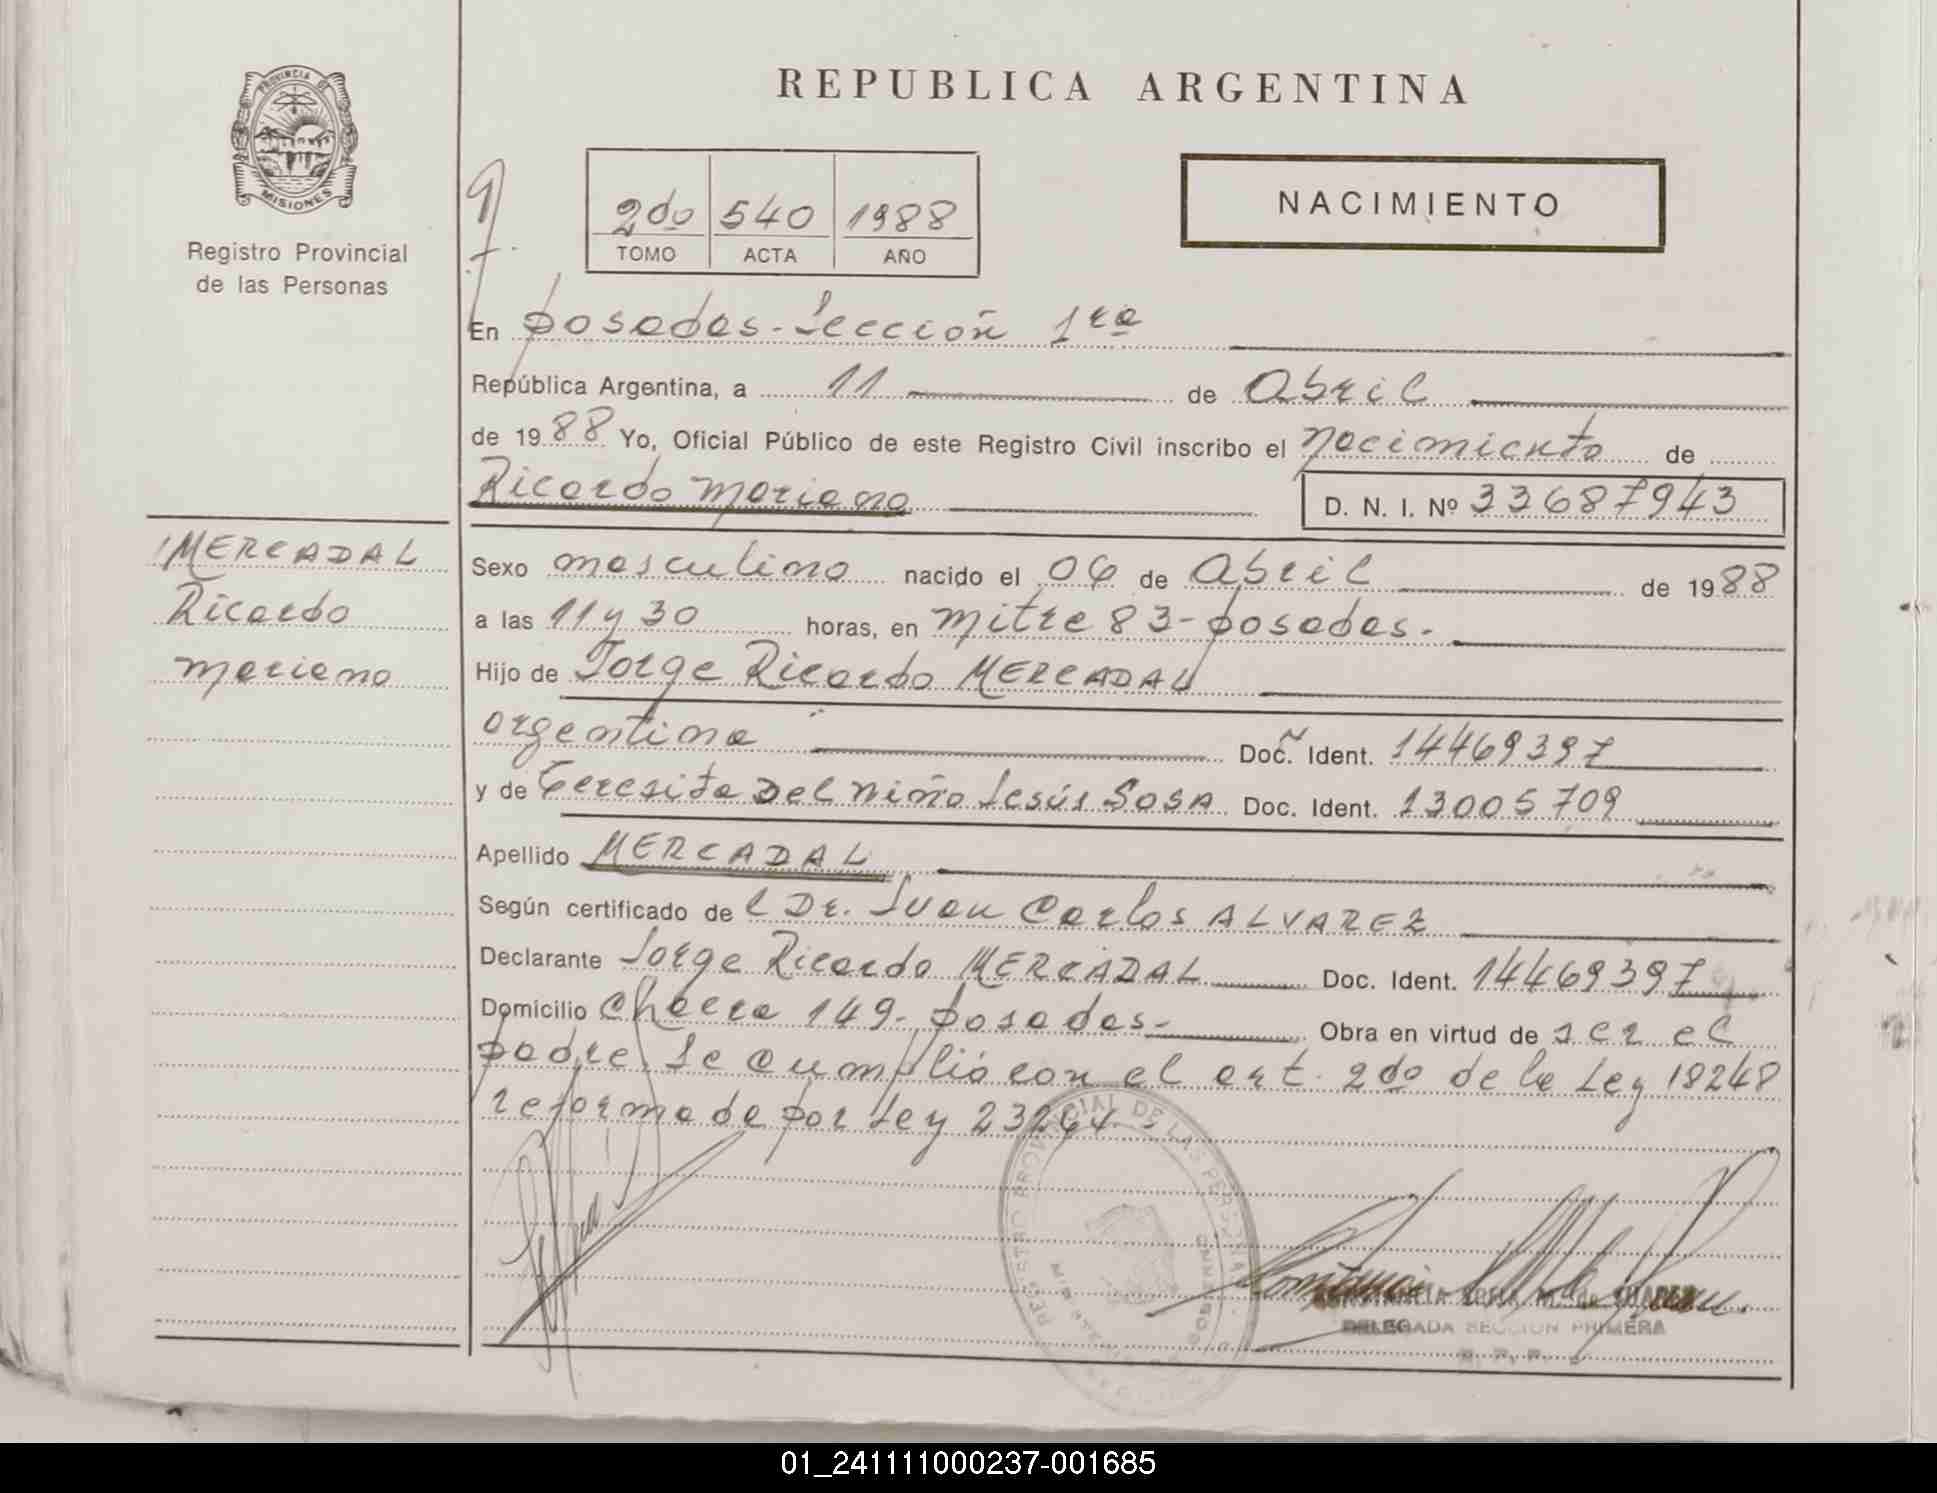 REPUBLICA ARGENTINA
PROVINCIA DE
MISIONES
Registro Provincial
de las Personas
2do 540 1988
TOMO ACTA AÑO
NACIMIENTO
En posadas - Sección 1ra
República Argentina, a 11 de abril
de 1988 Yo, Oficial Público de este Registro Civil inscribo el nacimiento de
Ricardo mariano D. N. I. Nº 33687943
MERCADAL
Ricardo
mariano
Sexo masculino nacido el 06 de abril de 1988
a las 11 y 30 horas, en mitre 83 - posadas.
Hijo de Jorge Ricardo MERCADAL
argentina Doc. Ident. 14469397
y de Teresita Del niño Jesús SOSA Doc. Ident. 13005709
Apellido MERCADAL
Según certificado del Dr. Juan Carlos ALVAREZ
Declarante Jorge Ricardo MERCADAL Doc. Ident. 14469397
Domicilio Chacra 149 - posadas - Obra en virtud de ser el
padre. Se cumplió con el art. 2do de la Ley 18248
reformada por Ley 23264.
REGISTRO PROVINCIAL DE LAS PERSONAS
DELEGADA SECCION PRIMERA
R. P. P.
01_241111000237-001685